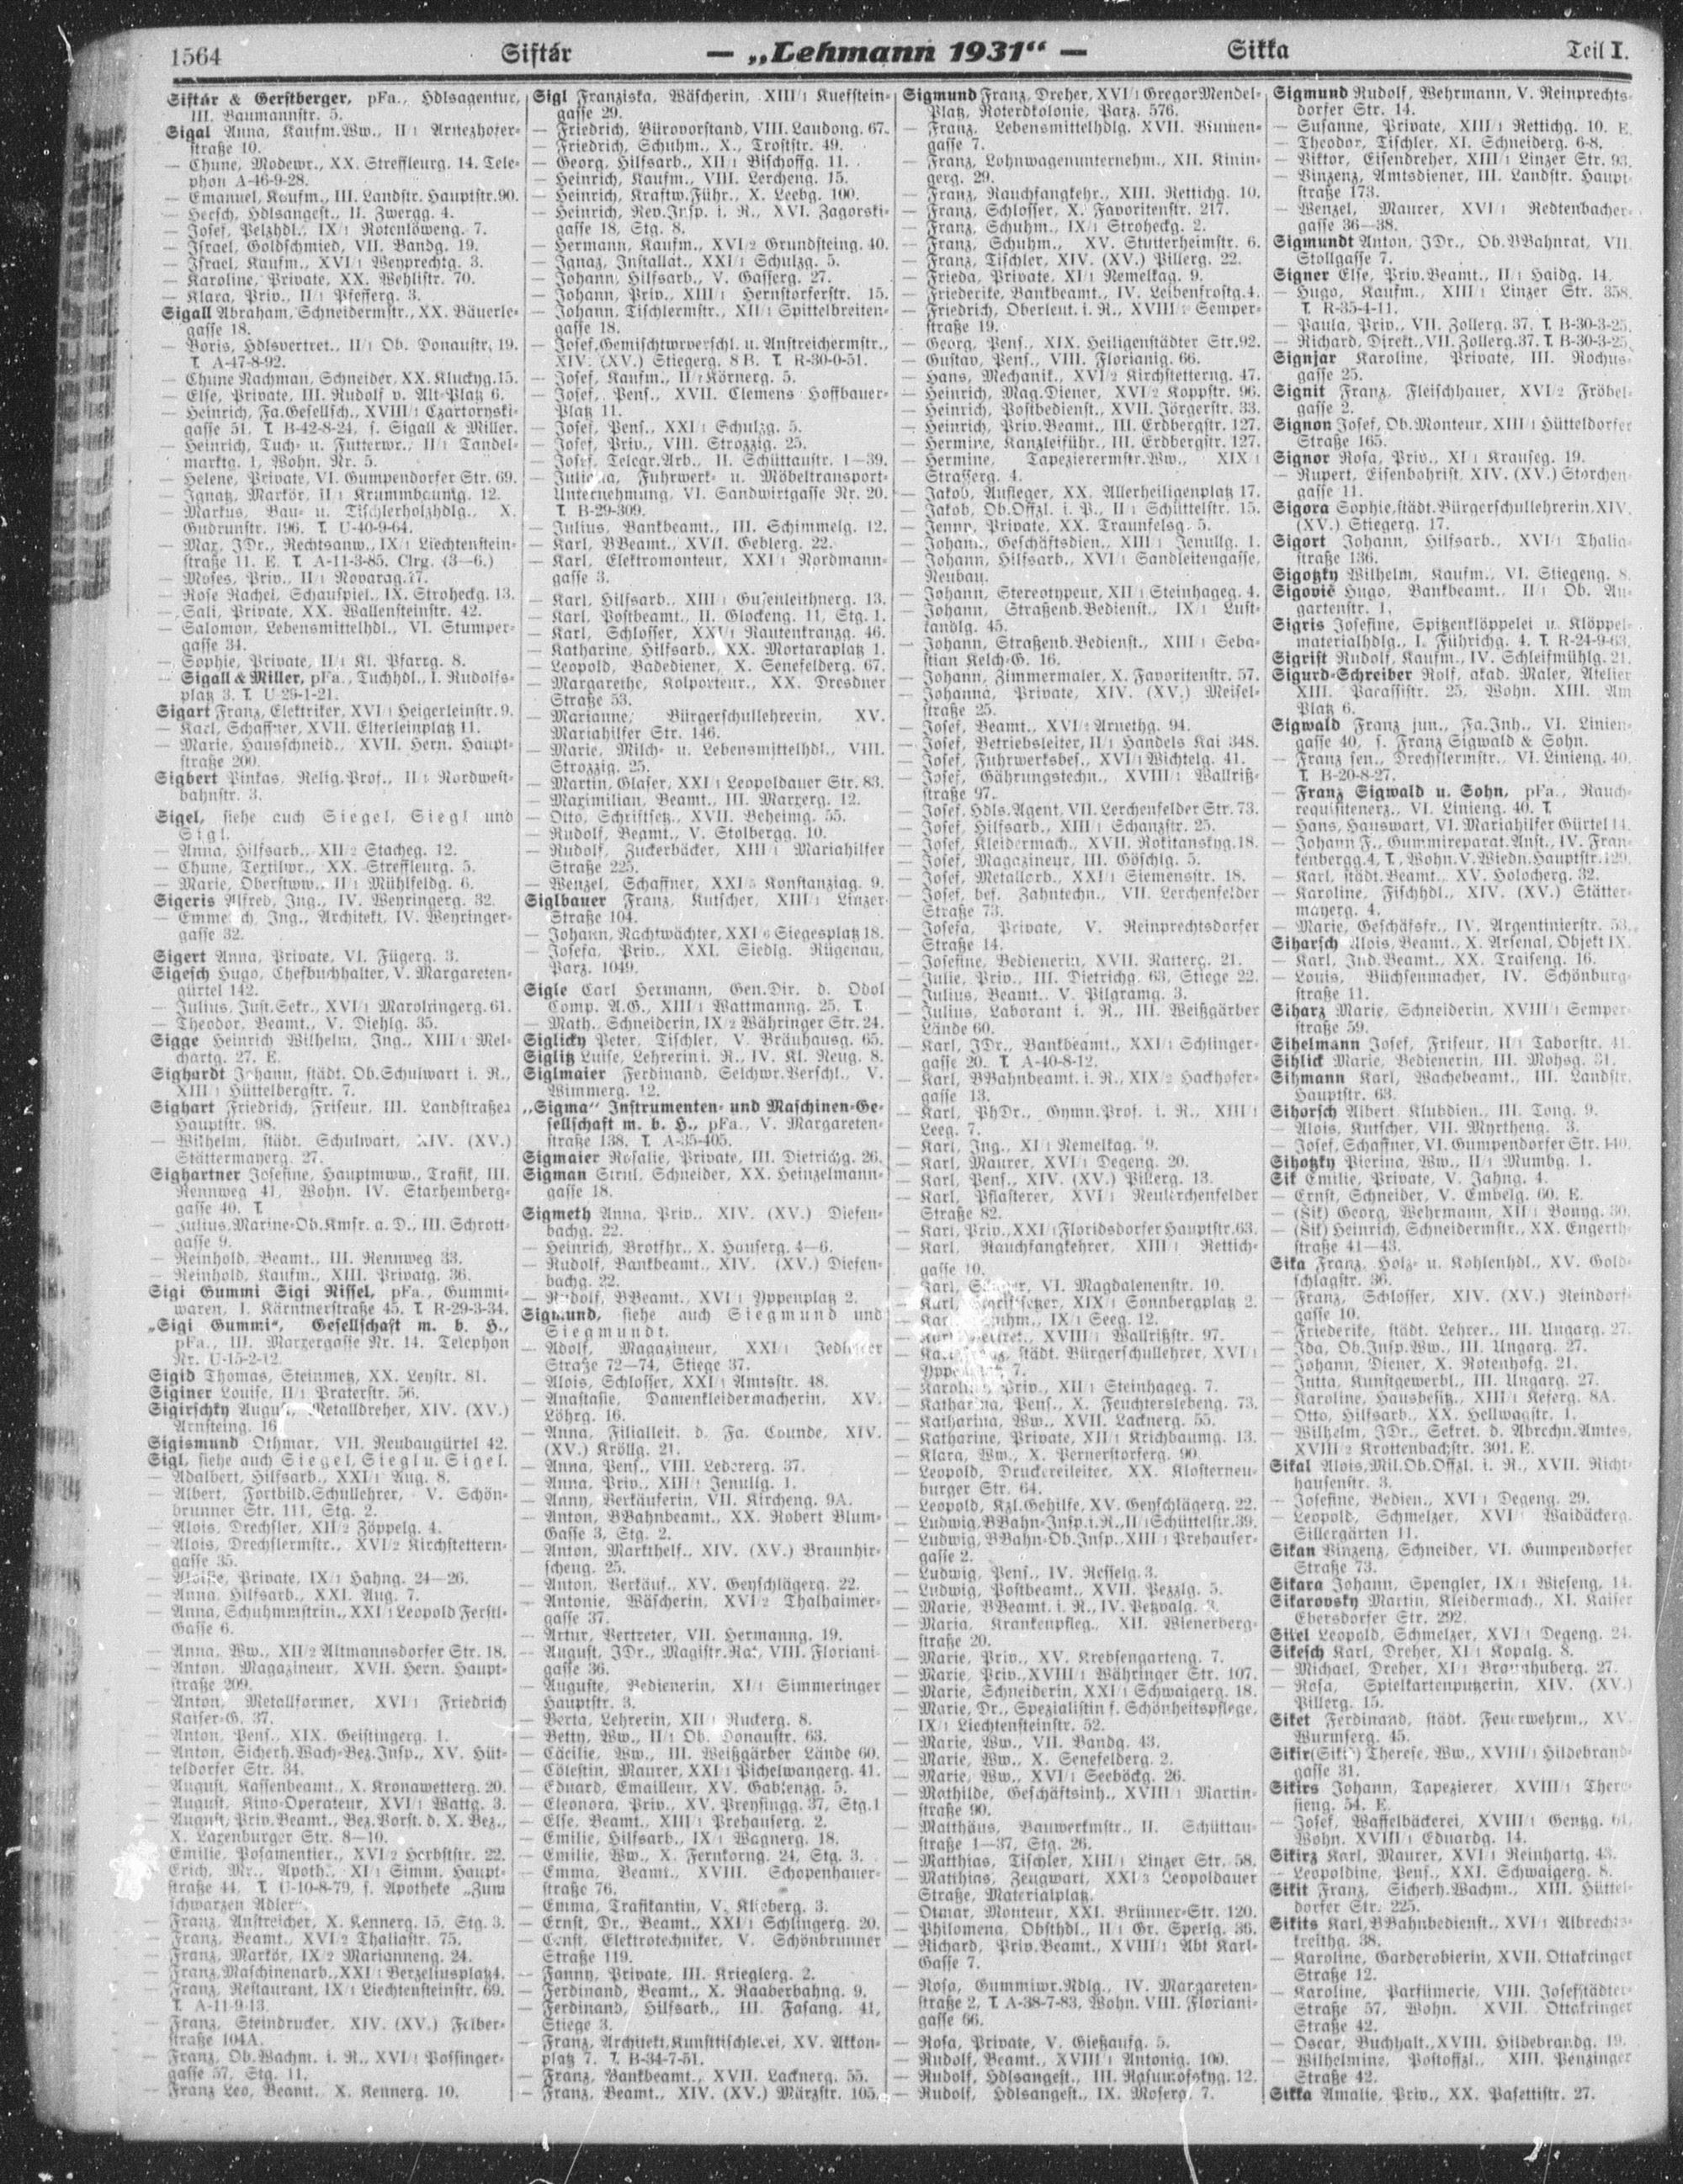 1564
Siftár
— „Lehmann 1931“ —
Sikka
Teil I.
Siftár & Gerstberger, pFa., Hdlsagentur,
III. Baumannstr. 5.
Sigal Anna, Kaufm.Ww., II/1 Arnezhofer-
straße 10.
— Chune, Modewr., XX. Streffleurg. 14. Tele-
phon A-46-9-28.
— Emanuel, Kaufm., III. Landstr. Hauptstr.90.
— Hersch, Hdlsangest., II. Zwergg. 4.
— Josef, Pelzhdl., IX/1 Rotenlöweng. 7.
— Israel, Goldschmied, VII. Bandg. 19.
— Israel, Kaufm., XVI/1 Weyprechtg. 3.
— Karoline, Private, XX. Wehlistr. 70.
— Klara, Priv., II/1 Pfefferg. 3.
Sigall Abraham, Schneidermstr., XX. Bäuerle-
gasse 18.
— Boris, Hdlsvertret., II/1 Ob. Donaustr. 19.
T. A-47-8-92.
— Chune Nachman, Schneider, XX. Kluckyg.15.
— Else, Private, III. Rudolf v. Alt-Platz 6.
— Heinrich, Fa.Gesellsch., XVIII/1 Czartoryski-
gasse 51, T. B-42-8-24, s. Sigall & Miller.
— Heinrich, Tuch- u. Futterwr., II/1 Tandel-
marktg. 1, Wohn. Nr. 5.
— Helene, Private, VI. Gumpendorfer Str. 69.
— Ignatz, Markör, II/1 Krummbaumg. 12.
— Markus, Bau- u. Tischlerholzhdlg., X.
Gudrunstr. 196. T. U-40-9-64.
— Max, JDr., Rechtsanw., IX/1 Liechtenstein-
straße 11. E. T. A-11-3-85. Clrg. (3—6.)
— Moses, Priv., II/1 Novarag.17.
— Rose Rachel, Schauspiel., IX. Stroheckg. 13.
— Sali, Private, XX. Wallensteinstr. 42.
— Salomon, Lebensmittelhdl., VI. Stumper-
gasse 34.
— Sophie, Private, II/1 Kl. Pfarrg. 8.
— Sigall & Miller, pFa., Tuchhdl., I. Rudolfs-
platz 3. T. U-29-1-21.
Sigart Franz, Elektriker, XVI/1 Heigerleinstr. 9.
— Karl, Schaffner, XVII. Elterleinplatz 11.
— Marie, Hausschneid., XVII. Hern. Haupt-
straße 200.
Sigbert Pinkas, Relig.Prof., II/1 Nordwest-
bahnstr. 3.
Sigel, siehe auch Siegel, Siegl und
Sigl.
— Anna, Hilfsarb., XII/2 Stacheg. 12.
— Chune, Textilwr., XX. Streffleurg. 5.
— Marie, Oberstww., II/1 Mühlfeldg. 6.
Sigeris Alfred, Ing., IV. Weyringerg. 32.
— Emmerich, Ing., Architekt, IV. Weyringer-
gasse 32.
Sigert Anna, Private, VI. Fügerg. 3.
Sigesch Hugo, Chefbuchhalter, V. Margareten-
gürtel 142.
— Julius, Just.Sekr., XVI/1 Marolringerg. 61.
— Theodor, Beamt., V. Diehlg. 35.
Sigge Heinrich Wilhelm, Ing., XIII/1 Mel-
chartg. 27. E.
Sighardt Johann, städt. Ob.Schulwart i. R.,
XIII/1 Hüttelbergstr. 7.
Sighart Friedrich, Friseur, III. Landstraßer
Hauptstr. 98.
— Wilhelm, städt. Schulwart, XIV. (XV.)
Stättermayerg. 27.
Sighartner Josefine, Hauptmww., Trafik, III.
Rennweg 41, Wohn. IV. Starhemberg-
gasse 40. T.
— Julius, Marine-Ob.Kmsr. a. D., III. Schrott-
gasse 9.
— Reinhold, Beamt., III. Rennweg 33.
— Reinhold, Kaufm., XIII. Privatg. 36.
Sigi Gummi Sigi Nissel, pFa., Gummi-
waren, I. Kärntnerstraße 45. T. R-29-3-34.
„Sigi Gummi“, Gesellschaft m. b. H.,
pFa., III. Marxergasse Nr. 14. Telephon
Nr. U-15-2-12.
Sigid Thomas, Steinmetz, XX. Leystr. 81.
Siginer Louise, II/1 Praterstr. 56.
Sigirschky August, Metalldreher, XIV. (XV.)
Arnsteing. 16
Sigismund Othmar, VII. Neubaugürtel 42.
Sigl, siehe auch Siegel, Siegl u. Sigel.
— Adalbert, Hilfsarb., XXI/1 Aug. 8.
— Albert, Fortbild.Schullehrer, V. Schön-
brunner Str. 111, Stg. 2.
— Alois, Drechsler, XII/2 Zöppelg. 4.
— Alois, Drechslermstr., XVI/2 Kirchstettern-
gasse 35.
— Aloisie, Private, IX/1 Hahng. 24—26.
— Anna, Hilfsarb., XXI. Aug. 7.
— Anna, Schuhmmstrin., XXI/1 Leopold Ferstl-
Gasse 6.
— Anna, Ww., XII/2 Altmannsdorfer Str. 18.
— Anton, Magazineur, XVII. Hern. Haupt-
straße 209.
— Anton, Metallformer, XVI/1 Friedrich
Kaiser-G. 37.
— Anton, Pens., XIX. Geistingerg. 1.
— Anton, Sicherh.Wach-Bez.Insp., XV. Hüt-
teldorfer Str. 34.
— August, Kassenbeamt., X. Kronawetterg. 20.
— August, Kino-Operateur, XVI/1 Wattg. 3.
— August, Priv.Beamt., Bez.Vorst. d. X. Bez.,
X. Laxenburger Str. 8—10.
— Emilie, Posamentier., XVI/2 Herbststr. 22.
— Erich, Mr., Apoth., XI/1 Simm. Haupt-
straße 44, T. U-10-8-79, s. Apotheke „Zum
schwarzen Adler“.
— Franz, Anstreicher, X. Kennerg. 15, Stg. 3.
— Franz, Beamt., XVI/2 Thaliastr. 75.
— Franz, Markör, IX/2 Marianneng. 24.
— Franz, Maschinenarb., XXI/1 Berzeliusplatz4.
— Franz, Restaurant, IX/1 Liechtensteinstr. 69.
T. A-11-9-13.
— Franz, Steindrucker, XIV. (XV.) Felber-
straße 104A.
— Franz, Ob.Wachm. i. R., XVI/1 Possinger-
gasse 57, Stg. 11.
— Franz Leo, Beamt., X. Kennerg. 10.
Sigl Franziska, Wäscherin, XIII/1 Kuefstein-
gasse 29.
— Friedrich, Bürovorstand, VIII. Laudong. 67.
— Friedrich, Schuhm., X., Troststr. 49.
— Georg, Hilfsarb., XII/1 Bischoffg. 11.
— Heinrich, Kaufm., VIII. Lercheng. 15.
— Heinrich, Kraftw.Führ., X. Leebg. 100.
— Heinrich, Rev.Insp. i. R., XVI. Zagorski-
gasse 18, Stg. 8.
— Hermann, Kaufm., XVI/2 Grundsteing. 40.
— Ignaz, Installat., XXI/1 Schulzg. 5.
— Johann, Hilfsarb., V. Gasserg. 27.
— Johann, Priv., XIII/1 Hernstorferstr. 15.
— Johann, Tischlermstr., XII/1 Spittelbreiten-
gasse 18.
— Josef, Gemischtwrverschl. u. Anstreichermstr.,
XIV. (XV.) Stiegerg. 8B. T. R-30-0-51.
— Josef, Kaufm., II/1 Körnerg. 5.
— Josef, Pens., XVII. Clemens Hoffbauer-
Platz 11.
— Josef, Pens., XXI/1 Schulzg. 5.
— Josef, Priv., VIII. Strozzig. 25.
— Josef, Telegr.Arb., II. Schüttaustr. 1—39.
— Juliana, Fuhrwerk- u. Möbeltransport-
Unternehmung, VI. Sandwirtgasse Nr. 20.
T. B-29-309.
— Julius, Bankbeamt., III. Schimmelg. 12.
— Karl, BBeamt., XVII. Geblerg. 22.
— Karl, Elektromonteur, XXI/1 Nordmann-
gasse 3.
— Karl, Hilfsarb., XIII/1 Gusenleithnerg. 13.
— Karl, Postbeamt., II. Glockeng. 11, Stg. 1.
— Karl, Schlosser, XXI/1 Rautenkranzg. 46.
— Katharine, Hilfsarb., XX. Mortaraplatz 1.
— Leopold, Badediener, X. Senefelderg. 67.
— Margarethe, Kolporteur., XX. Dresdner
Straße 53.
— Marianne, Bürgerschullehrerin, XV.
Mariahilfer Str. 146.
— Marie, Milch- u. Lebensmittelhdl., VIII.
Strozzig. 25.
— Martin, Glaser, XXI/1 Leopoldauer Str. 83.
— Maximilian, Beamt., III. Marxerg. 12.
— Otto, Schriftsetz., XVII. Beheimg. 55.
— Rudolf, Beamt., V. Stolbergg. 10.
— Rudolf, Zuckerbäcker, XIII/1 Mariahilfer
Straße 225.
— Wenzel, Schaffner, XXI/5 Konstanziag. 9.
Siglbauer Franz, Kutscher, XIII/1 Linzer
Straße 104.
— Johann, Nachtwächter, XXI/6 Siegesplatz 18.
— Josefa, Priv., XXI. Siedlg. Rügenau,
Parz. 1049.
Sigle Carl Hermann, Gen.Dir. d. Odol
Comp. A.G., XIII/1 Wattmanng. 25. T.
— Math., Schneiderin, IX/2 Währinger Str. 24.
Siglicky Peter, Tischler, V. Bräuhausg. 65.
Siglitz Luise, Lehrerin i. R., IV. Kl. Neug. 8.
Siglmaier Ferdinand, Selchwr.Verschl., V.
Wimmerg. 12.
„Sigma“ Instrumenten- und Maschinen-Ge-
sellschaft m. b. H., pFa., V. Margareten-
straße 138, T. A-35-405.
Sigmaier Rosalie, Private, III. Dietrichg. 26.
Sigman Strul, Schneider, XX. Heinzelmann-
gasse 18.
Sigmeth Anna, Priv., XIV. (XV.) Diefen-
bachg. 22.
— Heinrich, Brotfhr., X. Hauserg. 4—6.
— Rudolf, Bankbeamt., XIV. (XV.) Diefen-
bachg. 22.
— Rudolf, BBeamt., XVI/1 Yppenplatz 2.
Sigmund, siehe auch Siegmund und
Siegmundt.
— Adolf, Magazineur, XXI/1 Jedleseer
Straße 72—74, Stiege 37.
— Alois, Schlosser, XXI/1 Amtsstr. 48.
— Anastasie, Damenkleidermacherin, XV.
Löhrg. 16.
— Anna, Filialleit. d. Fa. Counde, XIV.
(XV.) Kröllg. 21.
— Anna, Pens., VIII. Ledererg. 37.
— Anna, Priv., XIII/1 Jenullg. 1.
— Anny, Verkäuferin, VII. Kircheng. 9A.
— Anton, BBahnbeamt., XX. Robert Blum-
Gasse 3, Stg. 2.
— Anton, Markthelf., XIV. (XV.) Braunhir-
scheng. 25.
— Anton, Verkäuf., XV. Geyschlägerg. 22.
— Antonie, Wäscherin, XVI/2 Thalhaimer-
gasse 37.
— Artur, Vertreter, VII. Hermanng. 19.
— August, JDr., Magistr.Rat, VIII. Floriani-
gasse 36.
— Auguste, Bedienerin, XI/1 Simmeringer
Hauptstr. 3.
— Berta, Lehrerin, XII/1 Ruckerg. 8.
— Betty, Ww., II/1 Ob. Donaustr. 63.
— Cäcilie, Ww., III. Weißgärber Lände 60.
— Cölestin, Maurer, XXI/1 Pichelwangerg. 41.
— Eduard, Emailleur, XV. Gablenzg. 5.
— Eleonora, Priv., XV. Preysingg. 37, Stg.1
— Else, Beamt., XIII/1 Prehauserg. 2.
— Emilie, Hilfsarb., IX/1 Wagnerg. 18.
— Emilie, Ww., X. Fernkorng. 24, Stg. 3.
— Emma, Beamt., XVIII. Schopenhauer-
straße 76.
— Emma, Trafikantin, V. Klieberg. 3.
— Ernst, Dr., Beamt., XXI/1 Schlingerg. 20.
— Ernst, Elektrotechniker, V. Schönbrunner
Straße 119.
— Fanny, Private, III. Krieglerg. 2.
— Ferdinand, Beamt., X. Raaberbahng. 9.
— Ferdinand, Hilfsarb., III. Fasang. 41,
Stiege 3.
— Franz, Architekt, Kunsttischlerei, XV. Akkon-
platz 7. T. B-34-7-51.
— Franz, Bankbeamt., XVII. Lacknerg. 55.
— Franz, Beamt., XIV. (XV.) Märzstr. 105.
Sigmund Franz, Dreher, XVI/1 Gregor Mendel-
Platz, Roterdkolonie, Parz. 576.
— Franz, Lebensmittelhdlg. XVII. Blumen-
gasse 7.
— Franz, Lohnwagenunternehm., XII. Kinin-
gerg. 29.
— Franz, Rauchfangkehr., XIII. Rettichg. 10.
— Franz, Schlosser, X. Favoritenstr. 217.
— Franz, Schuhm., IX/1 Stroheckg. 2.
— Franz, Schuhm., XV. Stutterheimstr. 6.
— Franz, Tischler, XIV. (XV.) Pillerg. 22.
— Frieda, Private, XI/1 Nemelkag. 9.
— Friederike, Bankbeamt., IV. Leibenfrostg.4.
— Friedrich, Oberleut. i. R., XVIII/2 Semper-
straße 19.
— Georg, Pens., XIX. Heiligenstädter Str.92.
— Gustav, Pens., VIII. Florianig. 66.
— Hans, Mechanik., XVI/2 Kirchstetterng. 47.
— Heinrich, Mag.Diener, XVI/2 Koppstr. 96.
— Heinrich, Postbedienst., XVII. Jörgerstr. 33.
— Heinrich, Priv.Beamt., III. Erdbergstr. 127.
— Hermine, Kanzleiführ., III. Erdbergstr. 127.
— Hermine, Tapezierermstr.Ww., XIX/1
Strasserg. 4.
— Jakob, Aufleger, XX. Allerheiligenplatz 17.
— Jakob, Ob.Offzl. i. P., II/1 Schüttelstr. 15.
— Jenny, Private, XX. Traunfelsg. 5.
— Johann, Geschäftsdien., XIII/1 Jenullg. 1.
— Johann, Hilfsarb., XVI/1 Sandleitengasse,
Neubau.
— Johann, Stereotypeur, XII/1 Steinhageg. 4.
— Johann, Straßenb.Bedienst., IX/1 Lust-
kandlg. 45.
— Johann, Straßenb.Bedienst., XIII/1 Seba-
stian Kelch-G. 16.
— Johann, Zimmermaler, X. Favoritenstr. 57.
— Johanna, Private, XIV. (XV.) Meisel-
straße 25.
— Josef, Beamt., XVI/2 Arnethg. 94.
— Josef, Betriebsleiter, II/1 Handels Kai 348.
— Josef, Fuhrwerksbes., XVI/1 Wichtelg. 41.
— Josef, Gährungstechn., XVIII/1 Wallriß-
straße 97.
— Josef, Hdls.Agent, VII. Lerchenfelder Str. 73.
— Josef, Hilfsarb., XIII/1 Schanzstr. 25.
— Josef, Kleidermach., XVII. Rokitanskyg.18.
— Josef, Magazineur, III. Göschlg. 5.
— Josef, Metallarb., XXI/1 Siemensstr. 18.
— Josef, bef. Zahntechn., VII. Lerchenfelder
Straße 73.
— Josefa, Private, V. Reinprechtsdorfer
Straße 14.
— Josefine, Bedienerin, XVII. Natterg. 21.
— Julie, Priv., III. Dietrichg. 63, Stiege 22.
— Julius, Beamt., V. Pilgramg. 3.
— Julius, Laborant i. R., III. Weißgärber
Lände 60.
— Karl, JDr., Bankbeamt., XXI/1 Schlinger-
gasse 20. T. A-40-8-12.
— Karl, BBahnbeamt. i. R., XIX/2 Hackhofer-
gasse 13.
— Karl, PhDr., Gymn.Prof. i. R., XIII/1
Leeg. 7.
— Karl, Ing., XI/1 Nemelkag. 9.
— Karl, Maurer, XVI/1 Degeng. 20.
— Karl, Pens., XIV. (XV.) Pillerg. 13.
— Karl, Pflasterer, XVI/1 Neulerchenfelder
Straße 82.
— Karl, Priv., XXI/1 Floridsdorfer Hauptstr.63.
— Karl, Rauchfangkehrer, XIII/1 Rettich-
gasse 10.
— Karl, VI. Magdalenenstr. 10.
— Karl, Schriftsetzer, XIX/1 Sonnbergplatz 2.
— Karl, Schuhm., IX/1 Seeg. 12.
— Karl, Vertret., XVIII/1 Wallrißstr. 97.
— Karl städt. Bürgerschullehrer, XVI/1
Yppenplatz 7.
— Karoline, Priv., XII/1 Steinhageg. 7.
— Katharina, Pens., X. Feuchterslebeng. 73.
— Katharina, Ww., XVII. Lacknerg. 55.
— Katharine, Private, XII/1 Krichbaumg. 13.
— Klara, Ww., X. Pernerstorferg. 90.
— Leopold, Druckereileiter, XX. Klosterneu-
burger Str. 64.
— Leopold, Kzl.Gehilfe, XV. Geyschlägerg. 22.
— Ludwig, BBahn-Insp.i.R., II/1 Schüttelstr.39.
— Ludwig, BBahn-Ob.Insp., XIII/1 Prehauser-
gasse 2.
— Ludwig, Pens., IV. Resselg. 3.
— Ludwig, Postbeamt., XVII. Pezzlg. 5.
— Marie, BBeamt. i. R., IV. Petzvalg. 3.
— Maria, Krankenpfleg., XII. Wienerberg-
straße 20.
— Marie, Priv., XV. Krebsengarteng. 7.
— Marie, Priv., XVIII/1 Währinger Str. 107.
— Marie, Schneiderin, XXI/1 Schwaigerg. 18.
— Marie, Dr., Spezialistin f. Schönheitspflege,
IX/1 Liechtensteinstr. 52.
— Marie, Ww., VII. Bandg. 43.
— Marie, Ww., X. Senefelderg. 2.
— Marie, Ww., XVI/1 Seeböckg. 26.
— Mathilde, Geschäftsinh., XVIII/1 Martin-
straße 90.
— Matthäus, Bauwerkmstr., II. Schüttau-
straße 1—37, Stg. 26.
— Matthias, Tischler, XIII/1 Linzer Str. 58.
— Matthias, Zeugwart, XXI/3 Leopoldauer
Straße, Materialplatz.
— Otmar, Monteur, XXI. Brünner Str. 120.
— Philomena, Obsthdl., II/1 Gr. Sperlg. 36.
— Richard, Priv.Beamt., XVIII/1 Abt Karl-
Gasse 7.
— Rosa, Gummiwr.Rdlg., IV. Margareten-
straße 2, T. A-38-7-83, Wohn. VIII. Floriani-
gasse 66.
— Rosa, Private, V. Gießaufg. 5.
— Rudolf, Beamt., XVIII/1 Antonig. 100.
— Rudolf, Hdlsangest., III. Rasumofskyg. 12.
— Rudolf, Hdlsangest., IX. Moserg. 7.
Sigmund Rudolf, Wehrmann, V. Reinprechts-
dorfer Str. 14.
— Susanne, Private, XIII/1 Rettichg. 10. E.
— Theodor, Tischler, XI. Schneiderg. 6-8.
— Viktor, Eisendreher, XIII/1 Linzer Str. 93.
— Vinzenz, Amtsdiener, III. Landstr. Haupt-
straße 173.
— Wenzel, Maurer, XVI/1 Redtenbacher-
gasse 36—38.
Sigmundt Anton, JDr., Ob.BBahnrat, VII.
Stollgasse 7.
Signer Else, Priv.Beamt., II/1 Haidg. 14.
— Hugo, Kaufm., XIII/1 Linzer Str. 358.
T. R-35-4-11.
— Paula, Priv., VII. Zollerg. 37. T. B-30-3-25.
— Richard, Direkt., VII. Zollerg.37. T. B-30-3-25.
Signjar Karoline, Private, III. Rochus-
gasse 25.
Signit Franz, Fleischhauer, XVI/2 Fröbel-
gasse 2.
Signon Josef, Ob.Monteur, XIII/1 Hütteldorfer
Straße 165.
Signor Rosa, Priv., XI/1 Krauseg. 19.
— Rupert, Eisenbohrist, XIV. (XV.) Storchen-
gasse 11.
Sigora Sophie, städt. Bürgerschullehrerin, XIV.
(XV.) Stiegerg. 17.
Sigort Johann, Hilfsarb., XVI/1 Thalia-
straße 136.
Sigotzky Wilhelm, Kaufm., VI. Stiegeng. 8.
Sigović Hugo, Bankbeamt., II/1 Ob. Au-
gartenstr. 1.
Sigris Josefine, Spitzenklöppelei u. Klöppel-
materialhdlg., I. Führichg. 4. T. R-24-9-63.
Sigrist Rudolf, Kaufm., IV. Schleifmühlg. 21.
Sigurd-Schreiber Rolf, akad. Maler, Atelier
XIII. Pacassistr. 25, Wohn. XIII. Am
Platz 6.
Sigwald Franz jun., Fa.Inh., VI. Linien-
gasse 40, s. Franz Sigwald & Sohn.
— Franz sen., Drechslermstr., VI. Linieng. 40.
T. B-20-8-27.
— Franz Sigwald u. Sohn, pFa., Rauch-
requisitenerz., VI. Linieng. 40. T.
— Hans, Hauswart, VI. Mariahilfer Gürtel 14.
— Johann F., Gummireparat.Anst., IV. Fran-
kenbergg.4, T., Wohn. V. Wiedn.Hauptstr.129.
— Karl, städt.Beamt., XV. Holocherg. 32.
— Karoline, Fischhdl., XIV. (XV.) Stätter-
mayerg. 4.
— Marie, Geschäfsfr., IV. Argentinierstr. 53.
Siharsch Alois, Beamt., X. Arsenal, Objekt IX.
— Karl, Ind.Beamt., XX. Traiseng. 16.
— Louis, Büchsenmacher, IV. Schönburg-
straße 11.
Siharz Marie, Schneiderin, XVIII/1 Semper-
straße 59.
Sihelmann Josef, Friseur, II/1 Taborstr. 41.
Sihlick Marie, Bedienerin, III. Mohsg. 31.
Sihmann Karl, Wachebeamt., III. Landstr.
Hauptstr. 63.
Sihorsch Albert, Klubdien., III. Tong. 9.
— Alois, Kutscher, VII. Myrtheng. 3.
— Josef, Schaffner, VI. Gumpendorfer Str. 140.
Sihotzky Pierina, Ww., II/1 Mumbg. 1.
Sik Emilie, Private, V. Jahng. 4.
— Ernst, Schneider, V. Embelg. 60. E.
— (Šik) Georg, Wehrmann, XII/1 Boyng. 30.
— (Šik) Heinrich, Schneidermstr., XX. Engerth-
straße 41—43.
Sika Franz, Holz- u. Kohlenhdl., XV. Gold-
schlagstr. 36.
— Franz, Schlosser, XIV. (XV.) Reindorf-
gasse 10.
— Friederike, städt. Lehrer., III. Ungarg. 27.
— Ida, Ob.Insp.Ww., III. Ungarg. 27.
— Johann, Diener, X. Rotenhofg. 21.
— Jutta, Kunstgewerbl., III. Ungarg. 27.
— Karoline, Hausbesitz., XIII/1 Keferg. 8A.
— Otto, Hilfsarb., XX. Hellwagstr. 1.
— Wilhelm, JDr., Sekret. d. Abrechn.Amtes,
XVIII/2 Krottenbachstr. 301. E.
Sikal Alois, Mil.Ob.Offzl. i. R., XVII. Richt-
hausenstr. 3.
— Josefine, Bedien., XVI/1 Degeng. 29.
— Leopold, Schmelzer, XVI/1 Waidäckerg.
Sillergärten 11.
Sikan Vinzenz, Schneider, VI. Gumpendorfer
Straße 73.
Sikara Johann, Spengler, IX/1 Wieseng. 14.
Sikarovsky Martin, Kleidermach., XI. Kaiser
Ebersdorfer Str. 292.
Sikel Leopold, Schmelzer, XVI/1 Degeng. 24.
Sikesch Karl, Dreher, XI/1 Kopalg. 8.
— Michael, Dreher, XI/1 Braunhuberg. 27.
— Rosa, Spielkartenputzerin, XIV. (XV.)
Pillerg. 15.
Siket Ferdinand, städt. Feuerwehrm., XV.
Wurmserg. 45.
Sikir (Sikić) Therese, Ww., XVIII/1 Hildebrand-
gasse 31.
Sikirs Johann, Tapezierer, XVIII/1 There-
sieng. 54. E.
— Josef, Waffelbäckerei, XVIII/1 Gentzg. 61,
Wohn. XVIII/1 Eduardg. 14.
Sikirz Karl, Maurer, XVI/1 Reinhartg. 43.
— Leopoldine, Pens., XXI. Schwaigerg. 8.
Sikit Franz, Sicherh.Wachm., XIII. Hüttel-
dorfer Str. 225.
Sikits Karl, BBahnbedienst., XVI/1 Albrechts-
kreithg. 38.
— Karoline, Garderobierin, XVII. Ottakringer
Straße 12.
— Karoline, Parfümerie, VIII. Josefstädter
Straße 57, Wohn. XVII. Ottakringer
Straße 42.
— Oscar, Buchhalt., XVIII. Hildebrandg. 19.
— Wilhelmine, Postoffzl., XIII. Penzinger
Straße 42.
Sikka Amalie, Priv., XX. Pasettistr. 27.